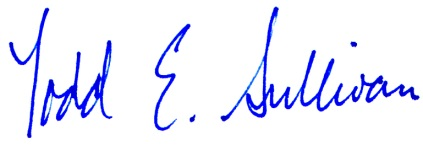 Todd E. Sullivan